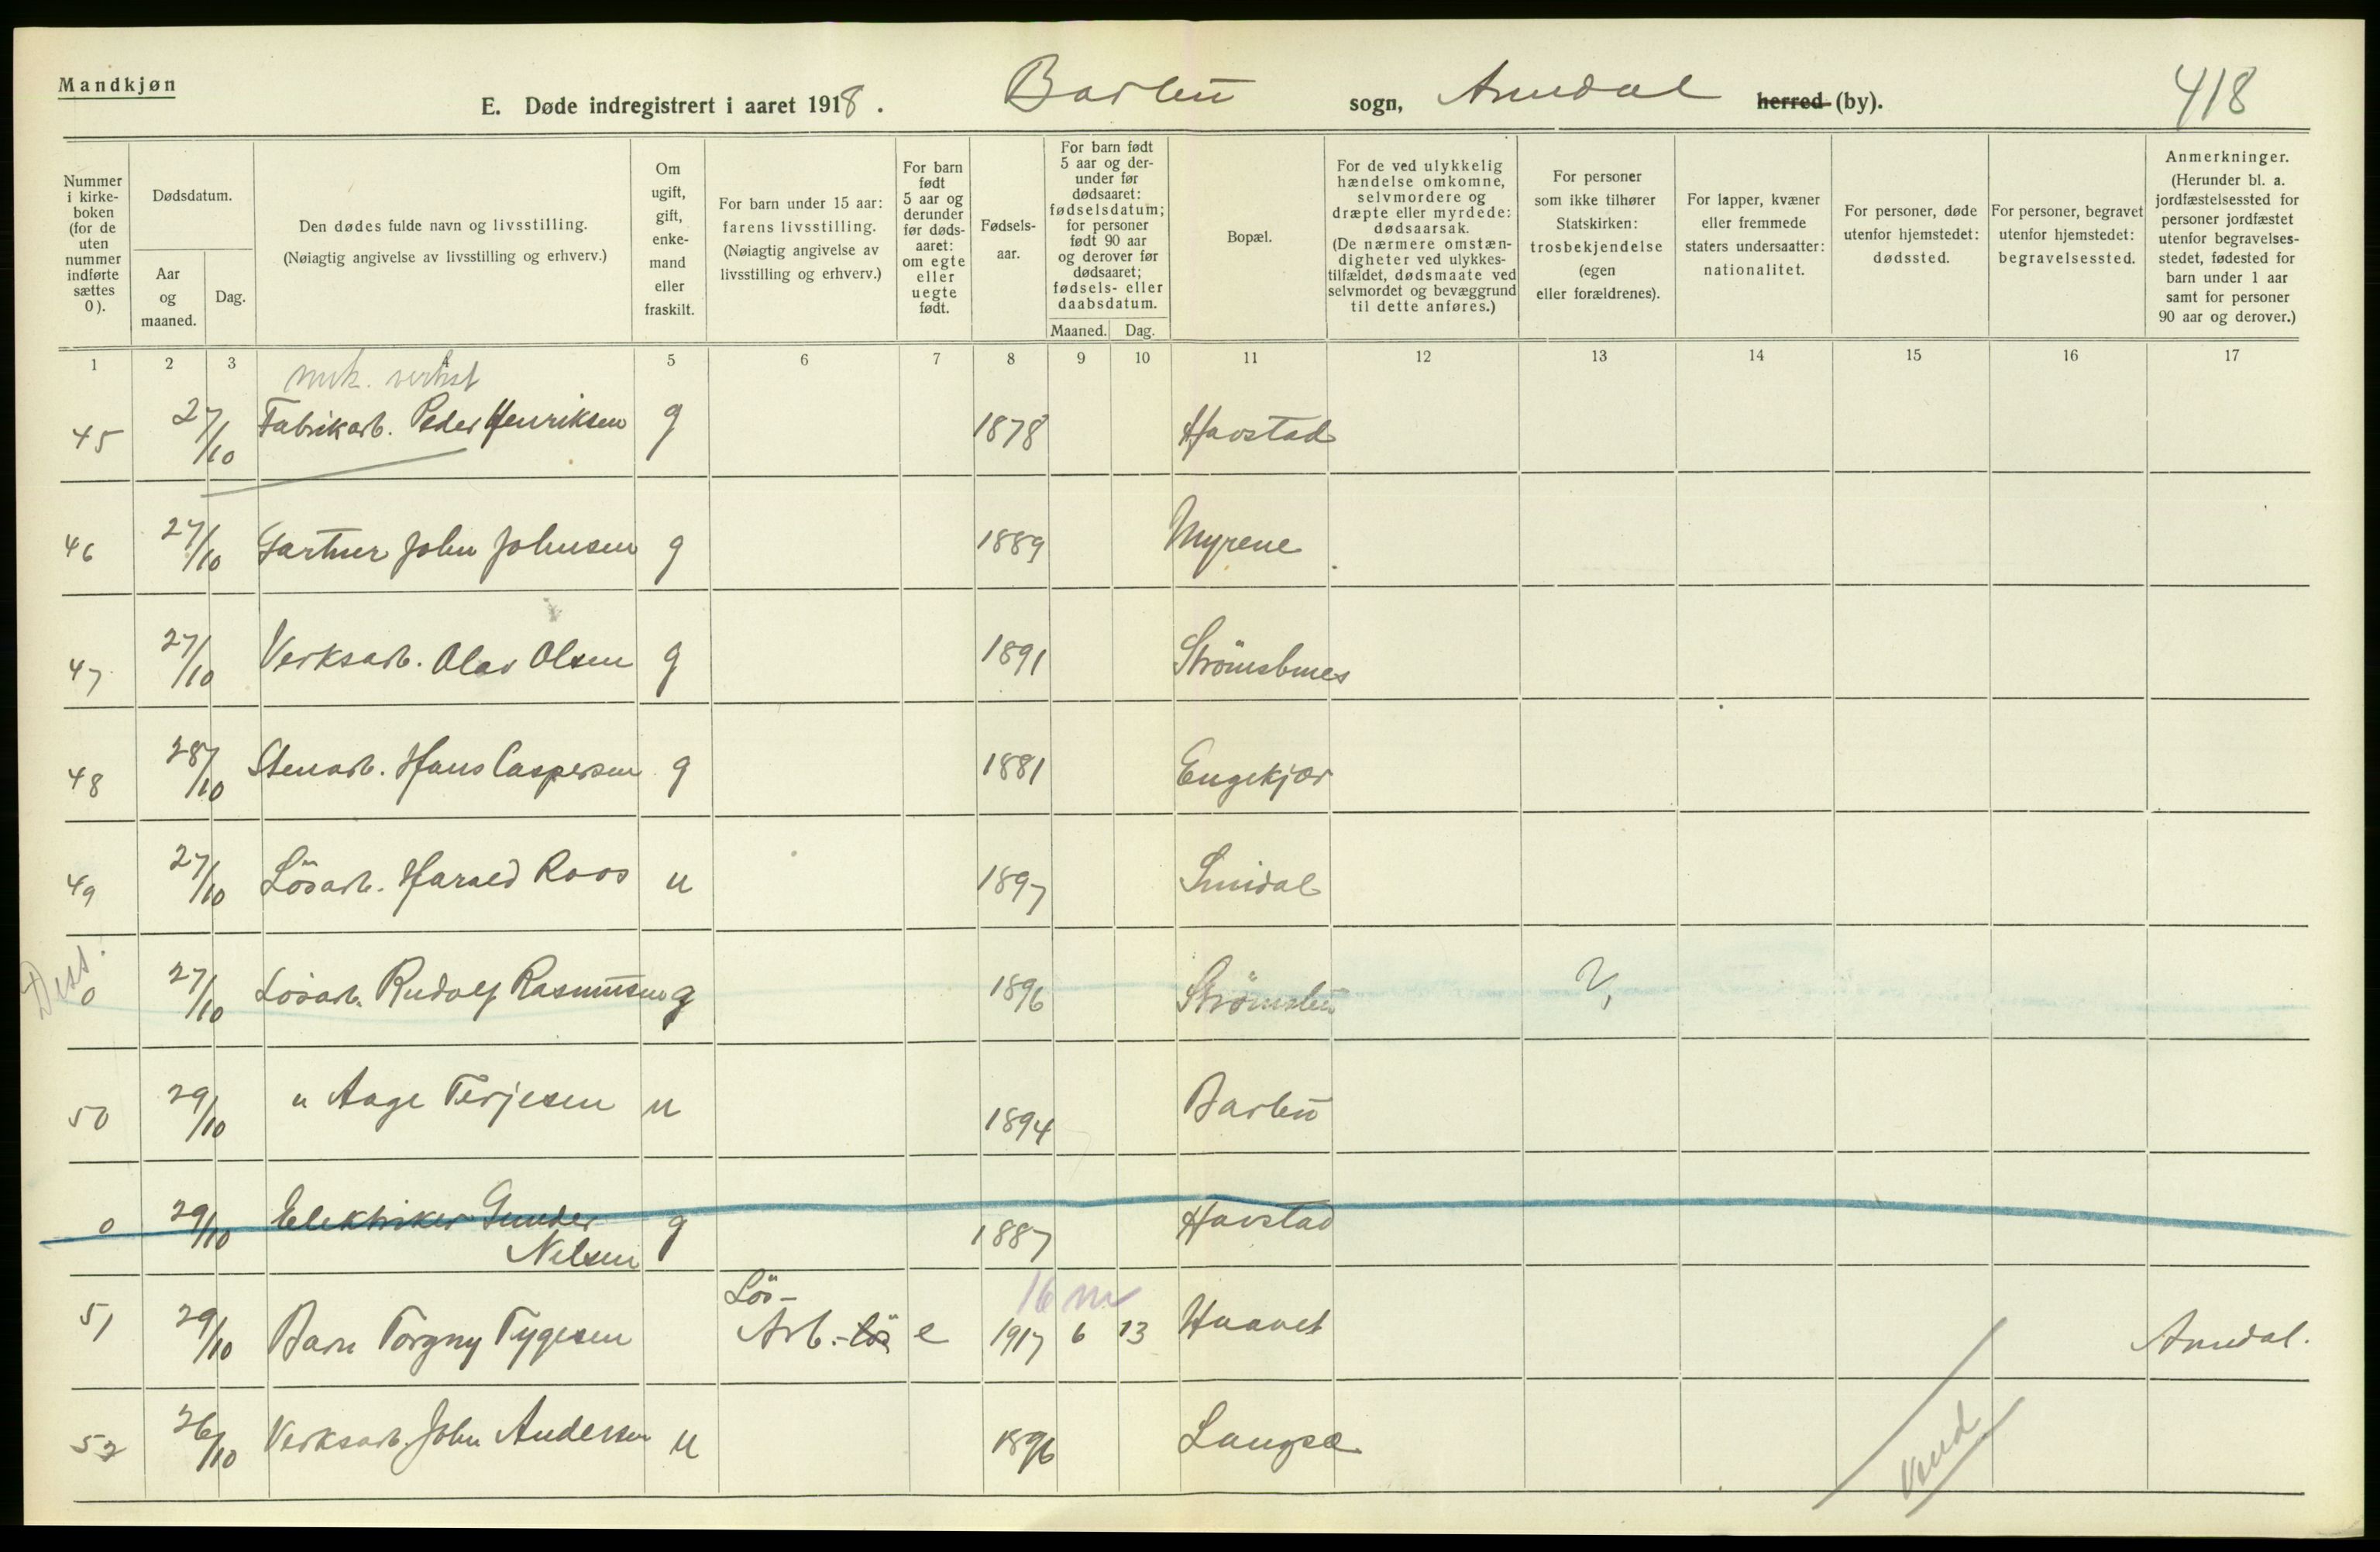 Mandkjøn
E. Døde indregistrert i aaret 1918. Barbu sogn, Arendal herred (by). 418
Nummer i kirke-boken (for de uten nummer indførte sættes 0).
Dødsdatum.
Aar og maaned.
Dag.
Den dødes fulde navn og livsstilling.
(Nøiagtig angivelse av livsstilling og erhverv.)
Om ugift, gift, enke-mand eller fraskilt.
For barn under 15 aar: farens livsstilling. (Nøiagtig angivelse av livsstilling og erhverv.)
For barn født 5 aar og derunder før døds-aaret: om egte eller uegte født.
Fødsels-aar.
For barn født 5 aar og der-under før dødsaaret: fødselsdatum; for personer født 90 aar og derover før dødsaaret; fødsels- eller daabsdatum.
Maaned. Dag.
Bopæl.
For de ved ulykkelig hændelse omkomne, selvmordere og dræpte eller myrdede: dødsaarsak. (De nærmere omstæn-digheter ved ulykkes-tilfældet, dødsmaate ved selvmordet og bevæggrund til dette anføres.)
For personer som ikke tilhører Statskirken: trosbekjendelse (egen eller forældrenes).
For lapper, kvæner eller fremmede staters undersaatter: nationalitet.
For personer, døde utenfor hjemstedet: dødssted.
For personer, begravet utenfor hjemstedet: begravelsessted.
Anmerkninger. (Herunder bl. a. jordfæstelsessted for personer jordfæstet utenfor begravelses-stedet, fødested for barn under 1 aar samt for personer 90 aar og derover.)
1 2 3 4 5 6 7 8 9 10 11 12 13 14 15 16 17
mek. verkst
45 27/10 Fabrikarb. Peder Henriksen g 1878 Havstad
46 27/10 Gartner John Johnsen g 1889 Myrene
47 27/10 Verksarb. Olav Olsen g 1891 Strömsbunes
48 28/10 Stenarb. Hans Caspersen g 1881 Engekjær
49 27/10 Lösarb. Harald Roos u 1897 Smidal
0 27/10 Lösarb. Rudolf Rasmussen g 1896 Strömsbu
50 29/10 " Aage Terjesen u 1894 Barbu
0 29/10 Elektriker Gunder Nelsen g 1887 Havstad
Lös- 16 m
51 29/10 Barn Torgny Tygesen Arb.-lös e 1917 6 13 Haavet Arendal.
52 26/10 Verksarb. John Andersen u 1896 Langsæ
Vend